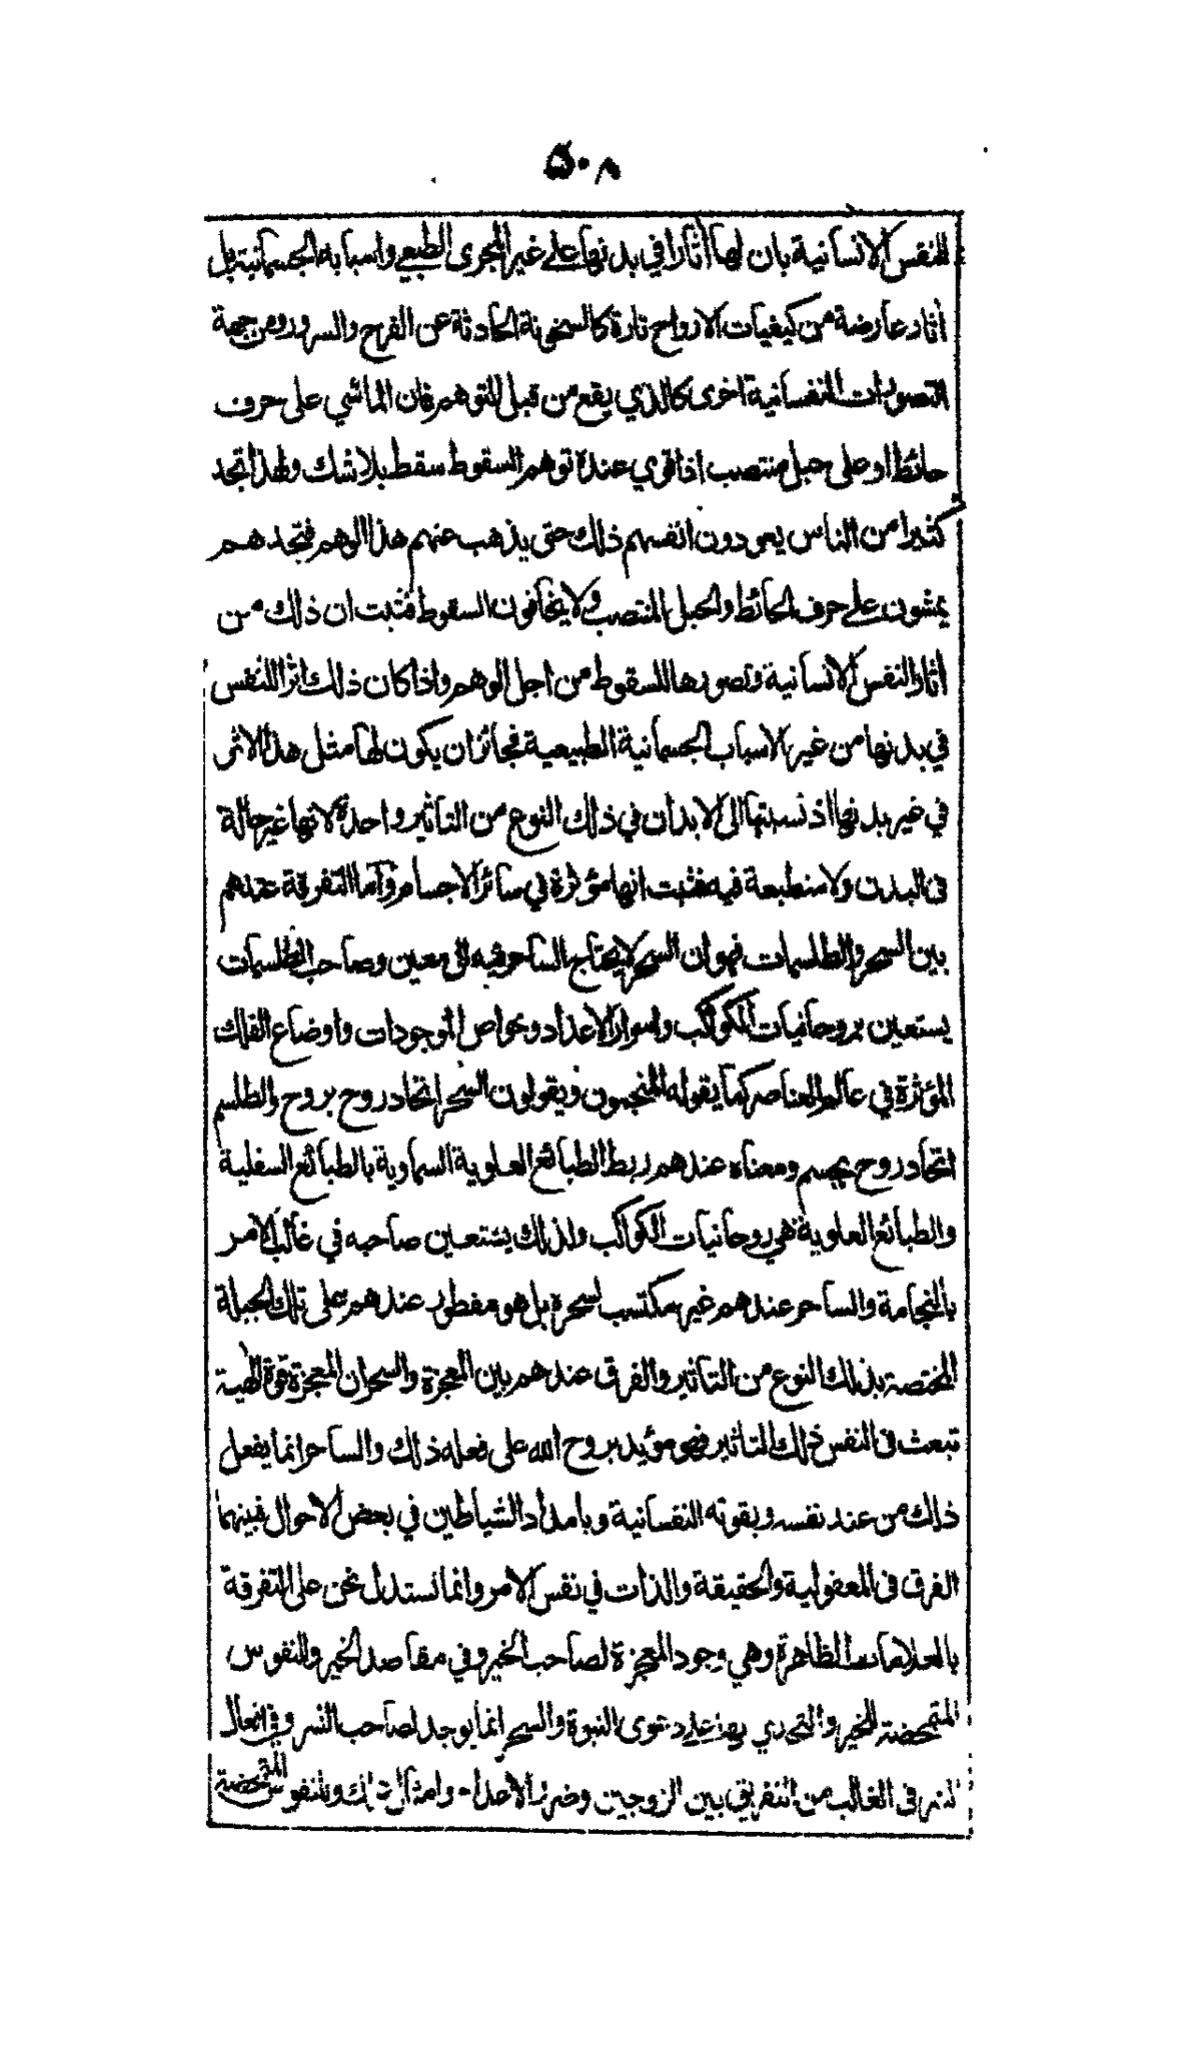 ۵۰۸
للنفس الانسانية بان لها آثارا في بدنها على غير المجرى الطبعي واسبابه الجسمانية بل
آثار عارضة من كيفيات الارواح تارة كالسخونة الحادثة عن الفرح والسرور ومن جهة
التصورات النفسانية اخرى كالذي يقع من قبل التوهم فان الماشي على حرف
حائط او على حبل منتصب اذا قوي عنده توهم السقوط سقط بلا شك ولهذا تجد
كثيرا من الناس يعودون انفسهم ذلك حتى يذهب عنهم هذا الوهم فتجدهم
يمشون على حرف الحائط والحبل المنتصب ولا يخافون السقوط فثبت ان ذلك من
آثار النفس الانسانية وتصورها للسقوط من اجل الوهم واذا كان ذلك اثرا للنفس
في بدنها من غير الاسباب الجسمانية الطبيعية فجائز ان يكون لها مثل هذا الاثر
في غير بدنها اذ نسبتها الى الابدان في ذلك النوع من التاثير واحدة لانها غير حالة
فى البدن ولا منطبعة فيه فثبت انها مؤثرة في سائر الاجسام واما التفرقة عندهم
بين السحر والطلسمات فهو ان السحر لا يحتاج الساحر فيه الى معين وصاحب الطلسمات
يستعين بروحانيات الكواكب واسرار الاعداد وخواص الموجودات واوضاع الفلك
المؤثرة في عالم العناصر كما يقوله المنجمون ويقولون السحر اتحاد روح بروح والطلسم
اتحاد روح بجسم ومعناه عندهم ربط الطبائع العلوية السماوية بالطبائع السفلية
والطبائع العلوية هي روحانيات الكواكب ولذلك يستعين صاحبه في غالب الامر
بالنجامة والساحر عندهم غير مكتسب لسحره بل هو مفطور عندهم على تلك الجبلة
المختصة بذلك النوع من التاثير والفرق عندهم بين المعجزة والسحر ان المعجزة قوة الهية
تبعث فى النفس ذلك التاثير فهو مؤيد بروح الله على فعله ذلك والساحر انما يفعل
ذلك من عند نفسه وبقوته النفسانية وبامداد الشياطين في بعض الاحوال فبينهما
الفرق فى المعقولية والحقيقة والذات في نفس الامر وانما نستدل نحن على التفرقة
بالعلامات الظاهرة وهي وجود المعجزة لصاحب الخير وفي مقاصد الخير وللنفوس
المتمحضة للخير والتحدي بها على دعوى النبوة والسحر انما يوجد لصاحب الشر وفي افعال
الشر فى الغالب من التفريق بين الزوجين وضرر الاعداء وامثال ذلك وللنفوس المتمحضة